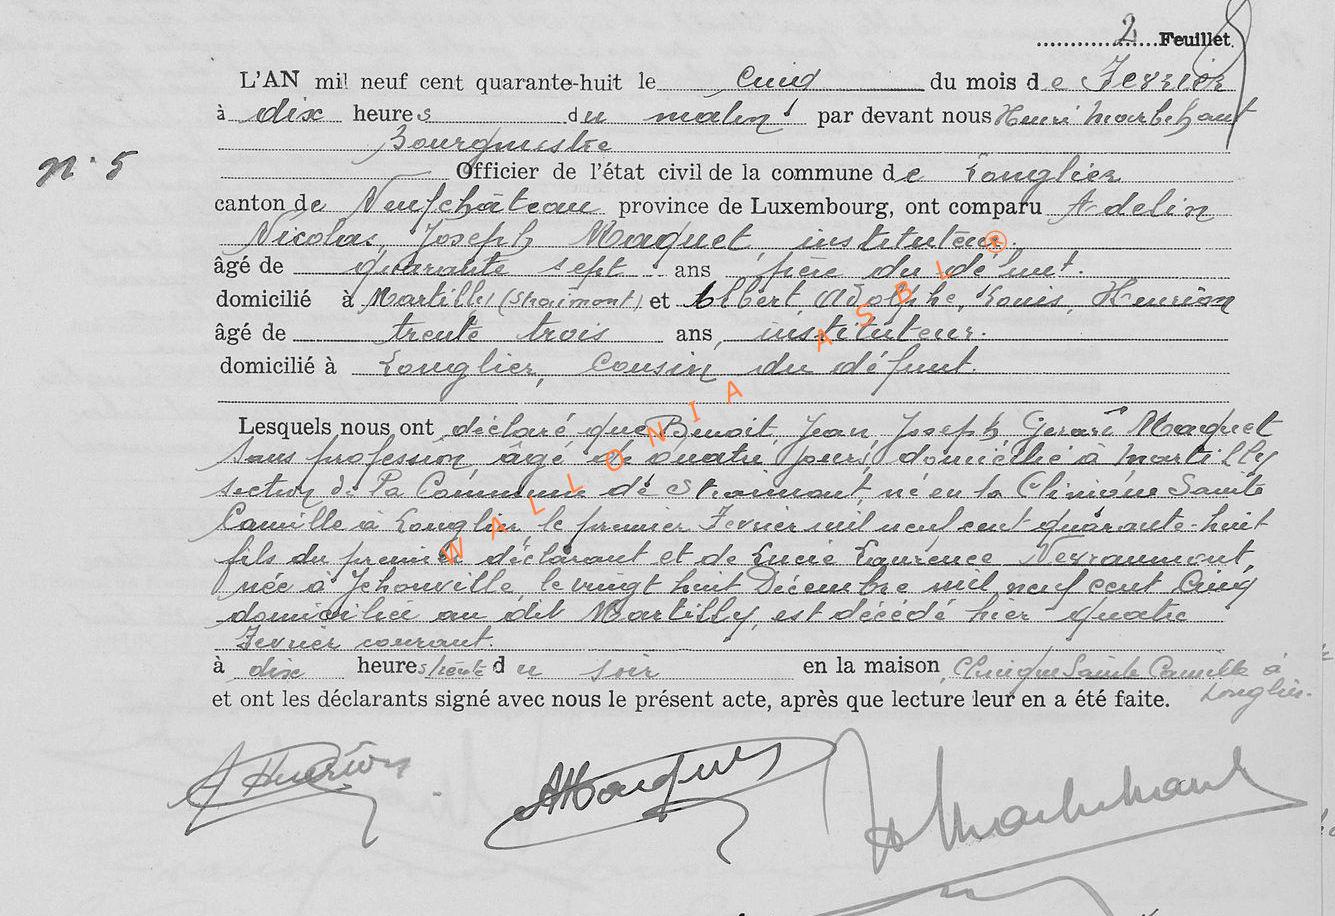 2 Feuillet
L'AN mil neuf cent quarante-huit le cinq du mois de Fevrier
à dix heures du matin par devant nous Henri Marbehant
Bourgmestre
n° 5
Officier de l'état civil de la commune de Longlier
canton de Neufchâteau province de Luxembourg, ont comparu Adelin
Nicolas, Joseph Maquet instituteur.
âgé de quarante sept ans père du défunt.
domicilié à Martilly (Straimont) et Albert Adolphe, Louis, Henrion
âgé de trente trois ans, instituteur.
domicilié à Longlier, Cousin du défunt.
Lesquels nous ont déclaré que Benoit, Jean, Joseph, Gerard Maquet
sans profession, âgé de quatre jours, domicilié à Martilly
section de la Commune de Straimont, né en la Clinique Sainte
Camille à Longlier, le premier Fevrier mil neuf cent quarante-huit
fils du premier déclarant et de Lucie Laurence Neyraumont,
née à Jehonville, le vingt huit Décembre mil neuf cent Cinq
domiciliée au dit Martilly, est décédé hier quatre
Fevrier courant.
à dix heures trente du soir en la maison Clinique Sainte Camille à
Longlier.
et ont les déclarants signé avec nous le présent acte, après que lecture leur en a été faite.
A Henrion AMaquet H Marbehant
WALLONIA ASBL ®